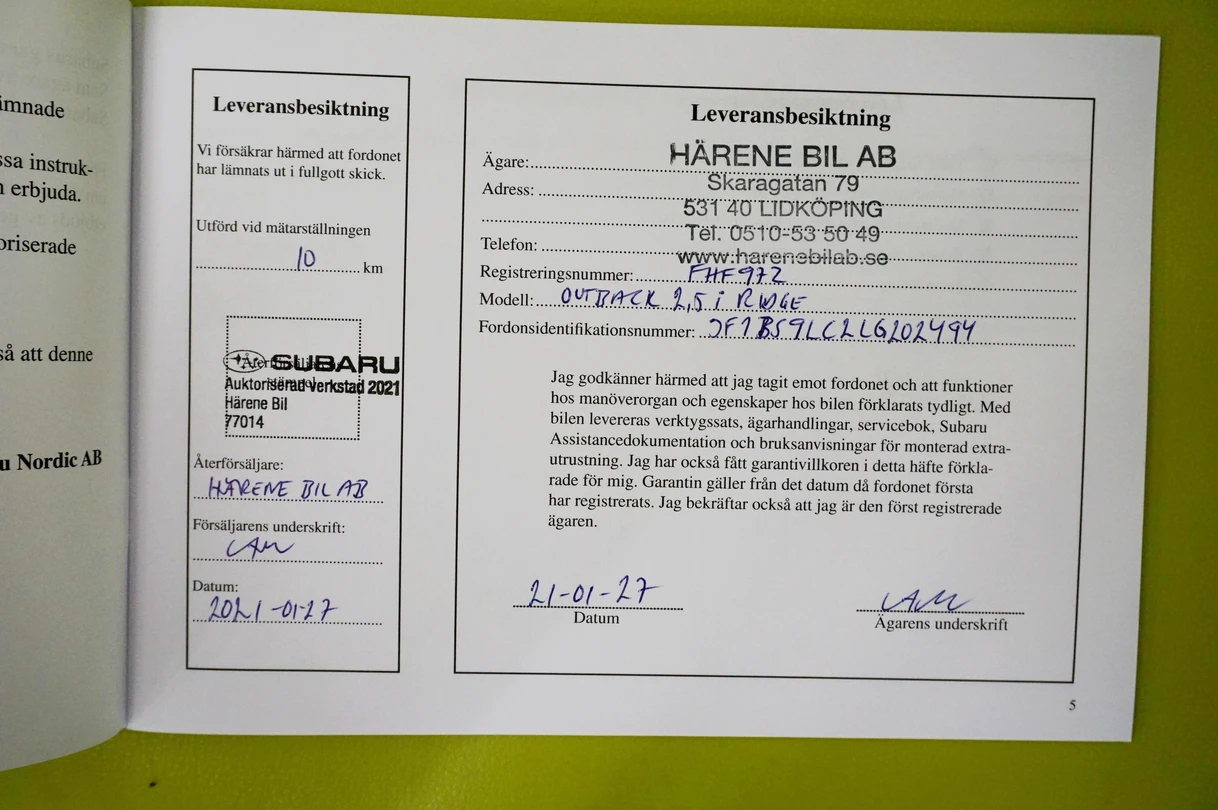 ämnade
ssa instruk-
n erbjuda.
oriserade
så att denne
u Nordic AB
Leveransbesiktning
Vi försäkrar härmed att fordonet
har lämnats ut i fullgott skick.
Utförd vid mätarställningen
10 km
SUBARU
Auktoriserad verkstad 2021
Härene Bil
77014
Återförsäljare:
HÄRENE BIL AB
Försäljarens underskrift:
Datum:
2021-01-27
Leveransbesiktning
Ägare: HÄRENE BIL AB
Adress: Skaragatan 79
531 40 LIDKÖPING
Tel. 0510-53 50 49
Telefon:
www.harenebilab.se
Registreringsnummer: FHF972
Modell: OUTBACK 2,5 i RIDGE
Fordonsidentifikationsnummer: JF1BS9LC2LG202494
Jag godkänner härmed att jag tagit emot fordonet och att funktioner
hos manöverorgan och egenskaper hos bilen förklarats tydligt. Med
bilen levereras verktygssats, ägarhandlingar, servicebok, Subaru
Assistancedokumentation och bruksanvisningar för monterad extra-
utrustning. Jag har också fått garantivillkoren i detta häfte förkla-
rade för mig. Garantin gäller från det datum då fordonet första
har registrerats. Jag bekräftar också att jag är den först registrerade
ägaren.
21-01-27
Datum
Ägarens underskrift
5